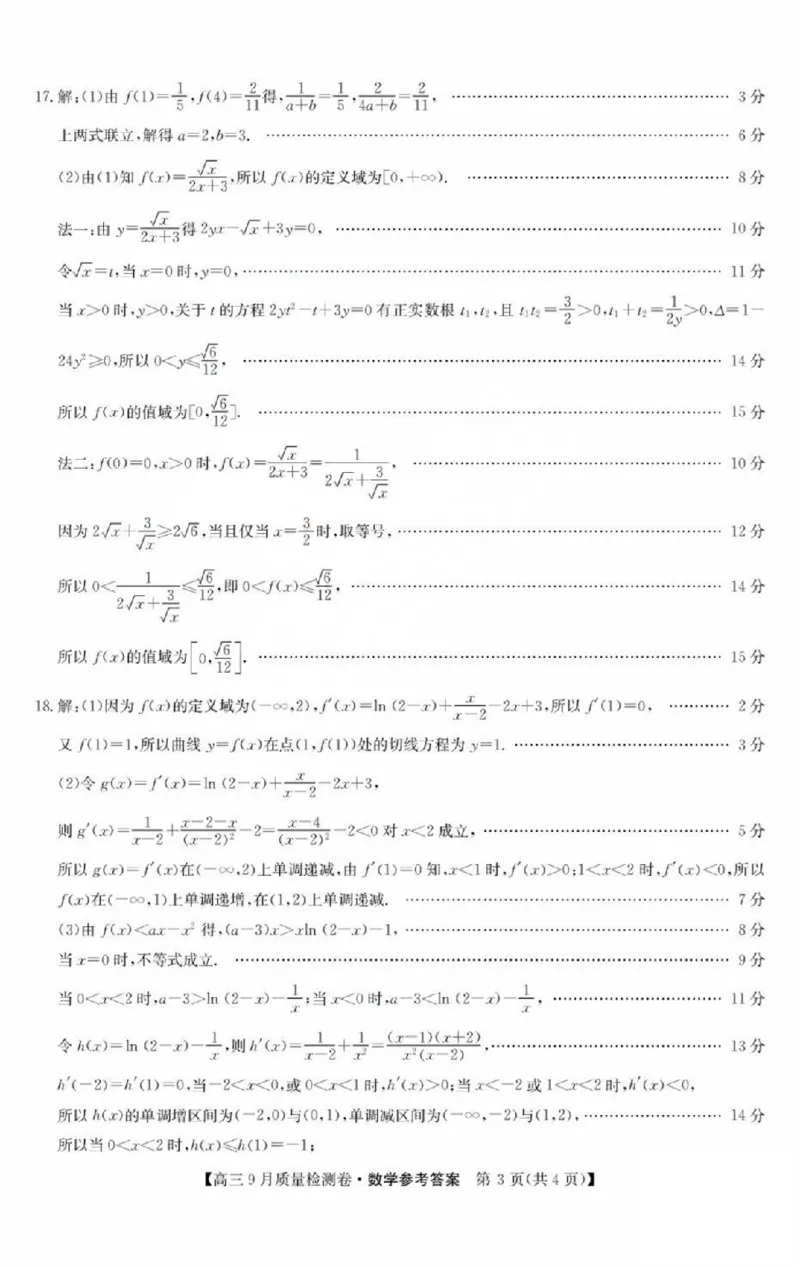 17.解:(1)由 f(1)=1/5,f(4)=2/11得,1/(a+b)=1/5,2/(4a+b)=2/11, ………… 3 分
上两式联立,解得 a=2,b=3. ………… 6 分
(2)由(1)知 f(x)=√x/(2x+3),所以 f(x)的定义域为[0,+∞). ………… 8 分
法一:由 y=√x/(2x+3)得 2yx-√x+3y=0, ………… 10 分
令√x=t,当 x=0 时,y=0, ………… 11 分
当 x>0 时,y>0,关于 t 的方程 2yt²-t+3y=0 有正实数根 t₁,t₂,且 t₁t₂=3/2>0,t₁+t₂=1/(2y)>0,Δ=1-
24y²≥0,所以 0<y≤√6/12, ………… 14 分
所以 f(x)的值域为[0,√6/12]. ………… 15 分
法二:f(0)=0,x>0 时,f(x)=√x/(2x+3)=1/(2√x+3/√x), ………… 10 分
因为 2√x+3/√x≥2√6,当且仅当 x=3/2时,取等号, ………… 12 分
所以 0<1/(2√x+3/√x)≤√6/12,即 0<f(x)≤√6/12, ………… 14 分
所以 f(x)的值域为[0,√6/12]. ………… 15 分
18.解:(1)因为 f(x)的定义域为(-∞,2),f′(x)=ln (2-x)+x/(x-2)-2x+3,所以 f′(1)=0, ………… 2 分
又 f(1)=1,所以曲线 y=f(x)在点(1,f(1))处的切线方程为 y=1. ………… 3 分
(2)令 g(x)=f′(x)=ln (2-x)+x/(x-2)-2x+3,
则 g′(x)=1/(x-2)+(x-2-x)/(x-2)²-2=(x-4)/(x-2)²-2<0 对 x<2 成立, ………… 5 分
所以 g(x)=f′(x)在(-∞,2)上单调递减,由 f′(1)=0 知,x<1 时,f′(x)>0;1<x<2 时,f′(x)<0,所以
f(x)在(-∞,1)上单调递增,在(1,2)上单调递减. ………… 7 分
(3)由 f(x)<ax-x² 得,(a-3)x>xln (2-x)-1, ………… 8 分
当 x=0 时,不等式成立. ………… 9 分
当 0<x<2 时,a-3>ln (2-x)-1/x;当 x<0 时,a-3<ln (2-x)-1/x, ………… 11 分
令 h(x)=ln (2-x)-1/x,则 h′(x)=1/(x-2)+1/x²=(x-1)(x+2)/(x²(x-2)), ………… 13 分
h′(-2)=h′(1)=0,当-2<x<0,或 0<x<1 时,h′(x)>0;当 x<-2 或 1<x<2 时,h′(x)<0,
所以 h(x)的单调增区间为(-2,0)与(0,1),单调减区间为(-∞,-2)与(1,2), ………… 14 分
所以当 0<x<2 时,h(x)≤h(1)=-1;
【高三 9 月质量检测卷·数学参考答案 第 3 页(共 4 页)】